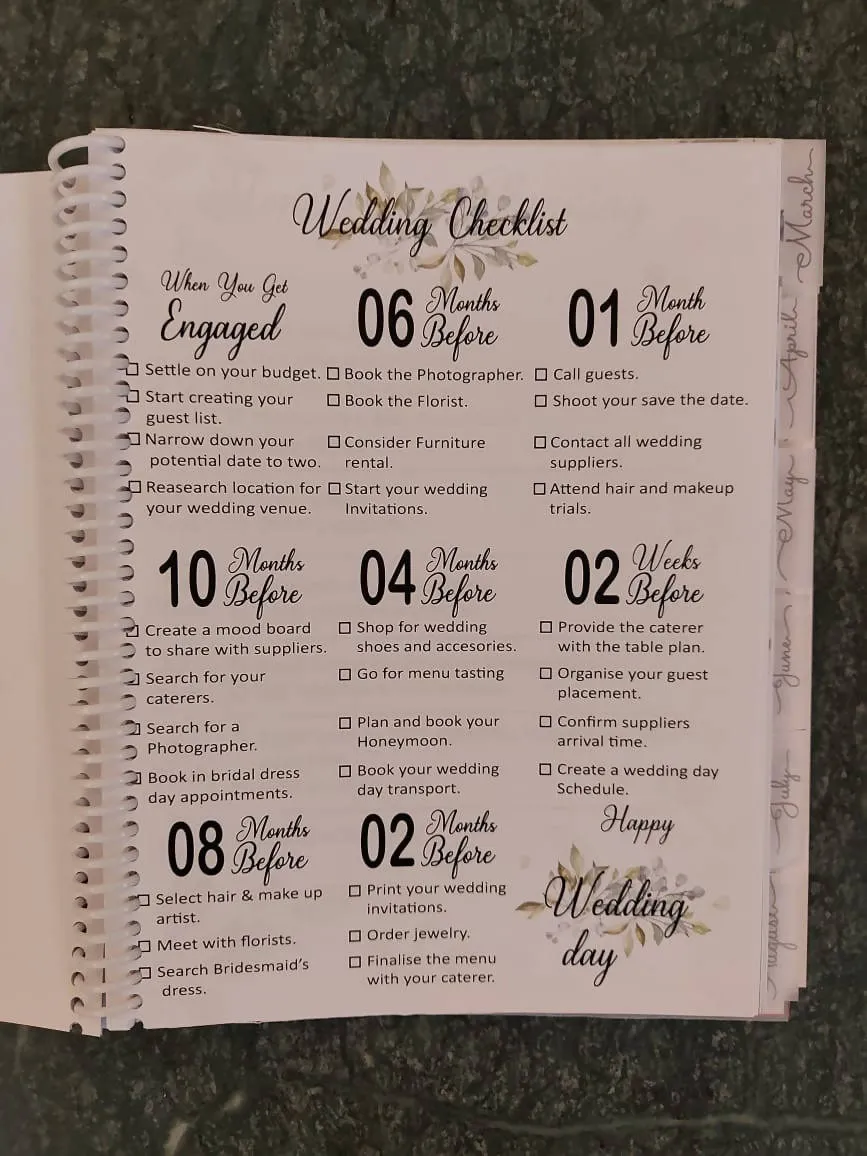 Wedding Checklist
When You Get
Engaged
Settle on your budget.
Start creating your
guest list.
Narrow down your
potential date to two.
Reasearch location for
your wedding venue.
10 Months
Before
Create a mood board
to share with suppliers.
Search for your
caterers.
Search for a
Photographer.
Book in bridal dress
day appointments.
08 Months
Before
Select hair & make up
artist.
Meet with florists.
Search Bridesmaid's
dress.
06 Months
Before
Book the Photographer.
Book the Florist.
Consider Furniture
rental.
Start your wedding
Invitations.
04 Months
Before
Shop for wedding
shoes and accesories.
Go for menu tasting
Plan and book your
Honeymoon.
Book your wedding
day transport.
02 Months
Before
Print your wedding
invitations.
Order jewelry.
Finalise the menu
with your caterer.
01 Month
Before
Call guests.
Shoot your save the date.
Contact all wedding
suppliers.
Attend hair and makeup
trials.
02 Weeks
Before
Provide the caterer
with the table plan.
Organise your guest
placement.
Confirm suppliers
arrival time.
Create a wedding day
Schedule.
Happy
Wedding
day
March
April
May
June
July
August